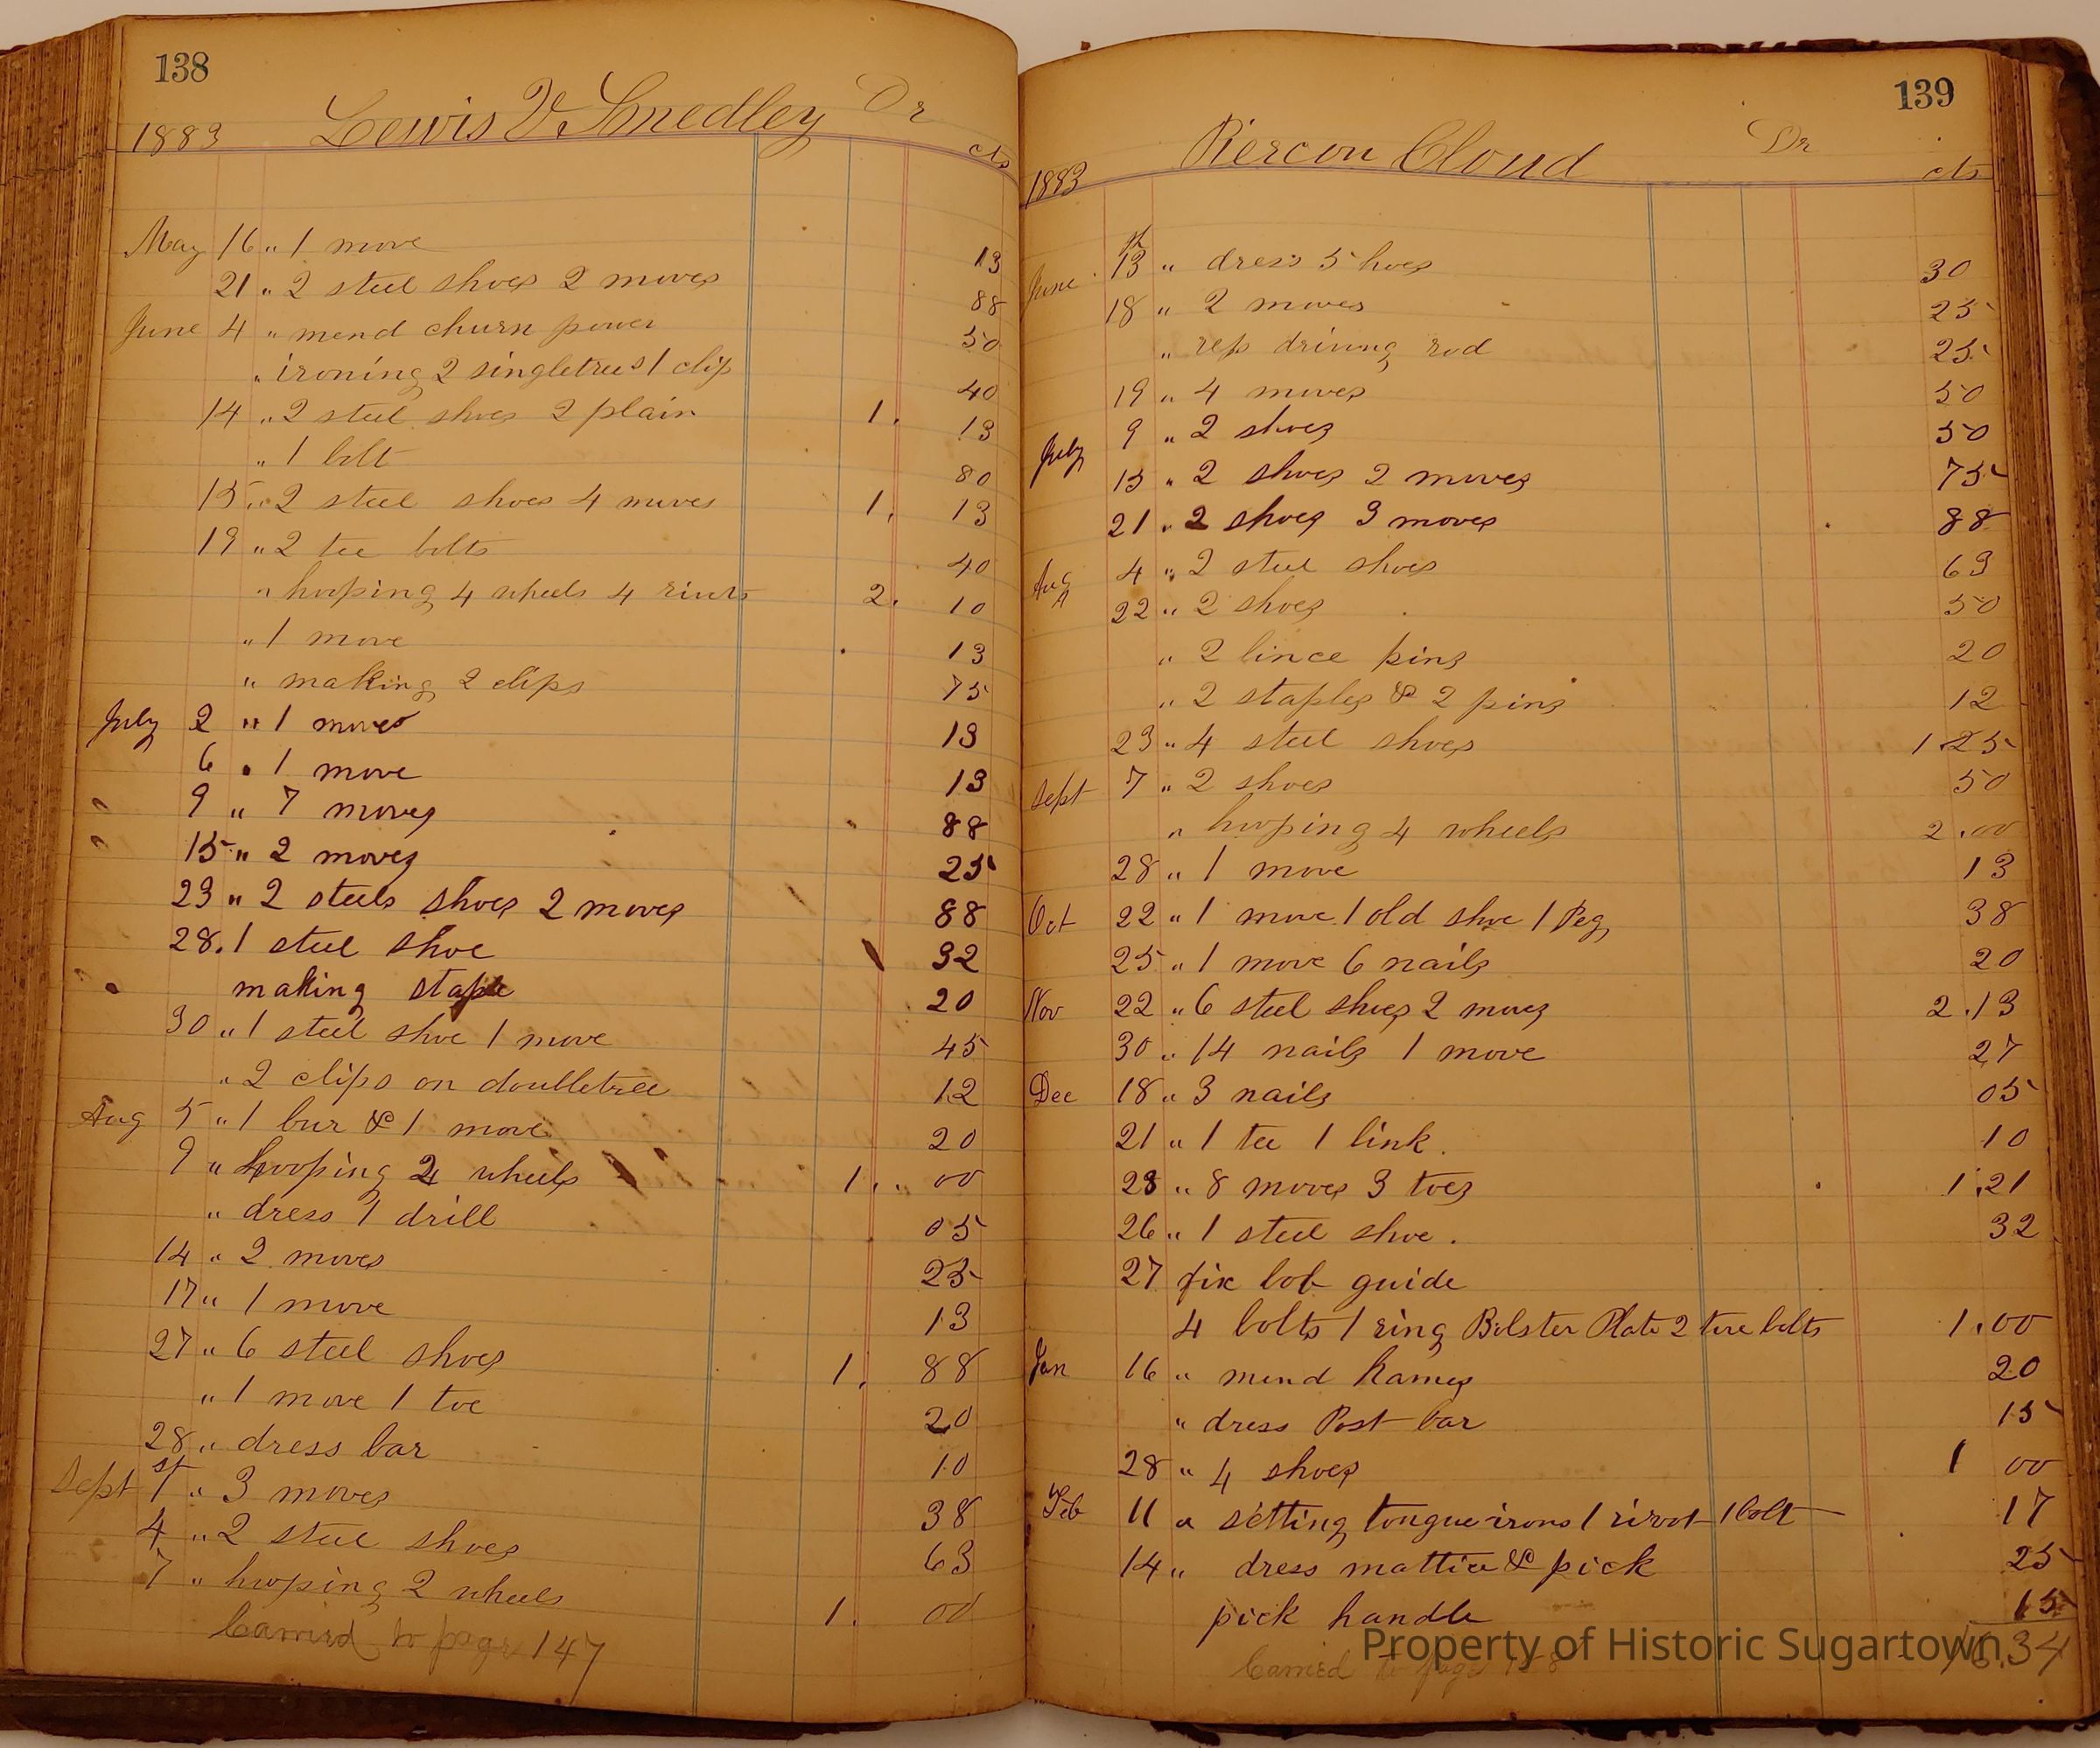 138
1883 Lewis V Smedley Dr
cts
May 16 " 1 move 13
21 " 2 steel shoes 2 moves 88
June 4 " mend churn power 50
" ironing 2 singletrees 1 clip 40
14 " 2 steel shoes 2 plain 1. 13
" 1 bolt 80
15 " 2 steel shoes 4 moves 1. 13
19 " 2 tee bolts 40
" hooping 4 wheels 4 rivts 2. 10
" 1 move 13
" making 2 clips 75
July 2 " 1 moves 13
6 " 1 move 13
" 9 " 7 moves 88
" 15 " 2 moves 25
23 " 2 steels shoes 2 moves 88
28. 1 steel shoe 32
making staple 20
30 " 1 steel shoe 1 move 45
" 2 clips on doulletree 12
Aug 5 " 1 bur & 1 move 20
9 " hooping 2 wheels 1. " 00
" dress 1 drill 05
14 " 2 moves 25
17 " 1 move 13
27 " 6 steel shoes 1. 88
" 1 move 1 toe 20
28 " dress bar 10
Sept 1st " 3 moves 38
4 " 2 steel shoes 63
7 " hooping 2 wheels 1. 00
Carried to page 147
139
1883 Piercon Cloud Dr
cts
June 13th " dress 5 hoes 30
18 " 2 moves 25
" rep driving rod 25
19 " 4 moves 50
July 9 " 2 shoes 50
15 " 2 shoes 2 moves 75
21 " 2 shoes 3 moves 88
Aug 4 " 2 steel shoes 63
22 " 2 shoes 50
" 2 lince pins 20
" 2 staples & 2 pins 12
23 " 4 steel shoes 1.25
Sept 7 " 2 shoes 50
" hooping 4 wheels 2.00
28 " 1 move 13
Oct 22 " 1 move 1 old shoe 1 Peg 38
25 " 1 move 6 nails 20
Nov 22 " 6 steel shoes 2 moves 2.13
30 " 14 nails 1 move 27
Dec 18 " 3 nails 05
21 " 1 tee 1 link. 10
23 " 8 moves 3 toes 1.21
26 " 1 steel shoe. 32
27 fix bob guide
4 bolts 1 ring Bolster Plate 2 tire bolts 1.00
Jan 16 " mend hames 20
" dress Post bar 15
28 " 4 shoes 1 00
Feb 11 " setting tongue irons 1 rivot 1 bolt 17
14 " dress mattice & pick 25
pick handle 15
16.34
Carried to page 158
Property of Historic Sugartown